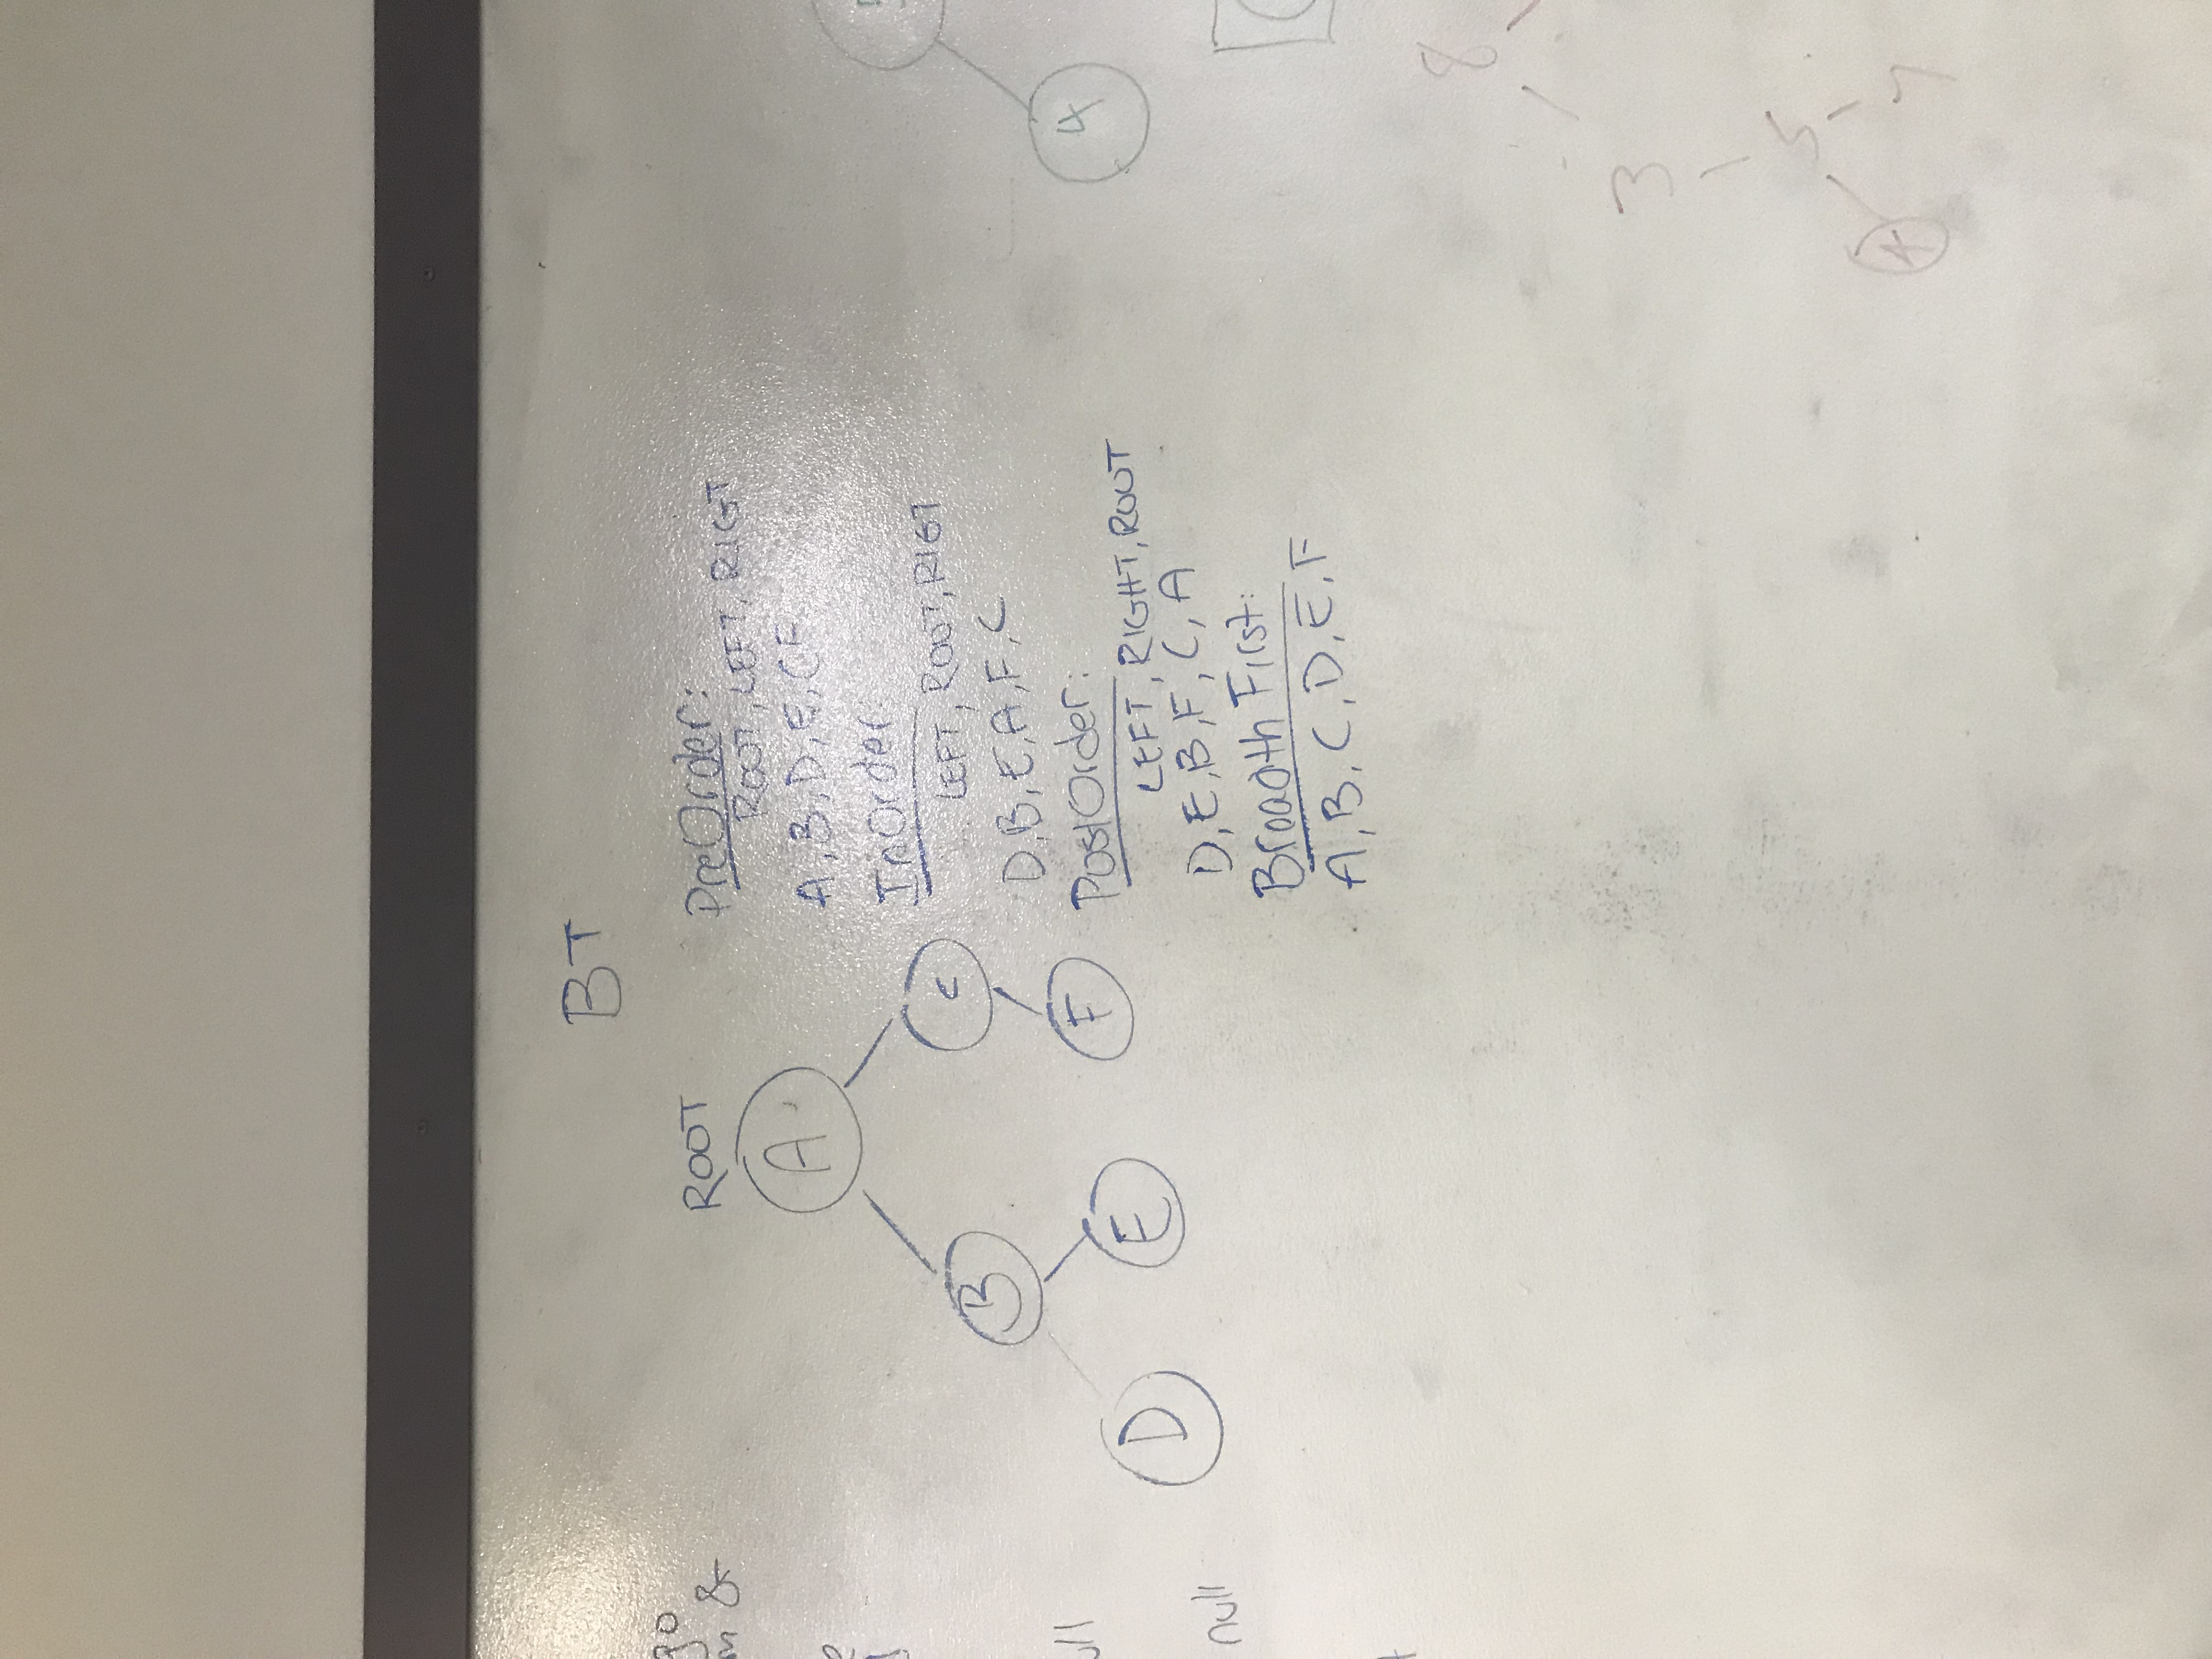 BT
ROOT
A
B
C
D
E
F
PreOrder:
ROOT, LEFT, RIGT
A, B, D, E, C F
InOrder:
LEFT, ROOT, RIGT
D, B, E, A, F, C
PostOrder:
LEFT, RIGHT, ROOT
D, E, B, F, C, A
Breadth First:
A, B, C, D, E, F
go
&
null
4
8
3
5
4
7